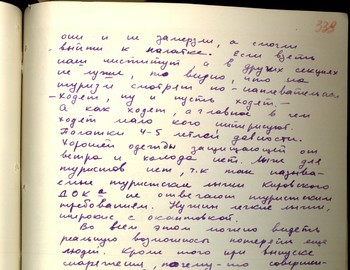 338
они и не замерзли, а смогли
выйти к палатке. Если взять
наш институт, а в других секциях
не лучше, то видно, что на
туризм смотрят но-наплевательски
-ходят, ну и пусть ходят.-
А как ходят, а главное в чем
ходят мало кого интересует.
Палатки 4-5 летней давности.
Хорошей одежды защищающей от
ветра и холода нет. Лыж для
туристов нет, т.к так называ-
емые туристские лыжи Кировского
ДОКа не отвечают туристским
требованиям. Нужны легкие лыжи,
широкие с окантовкой.
Во всем этом можно видеть
реальную возможность потерять еще
людей. Кроме того при выпуске
снаряжения, почему-то совершен-